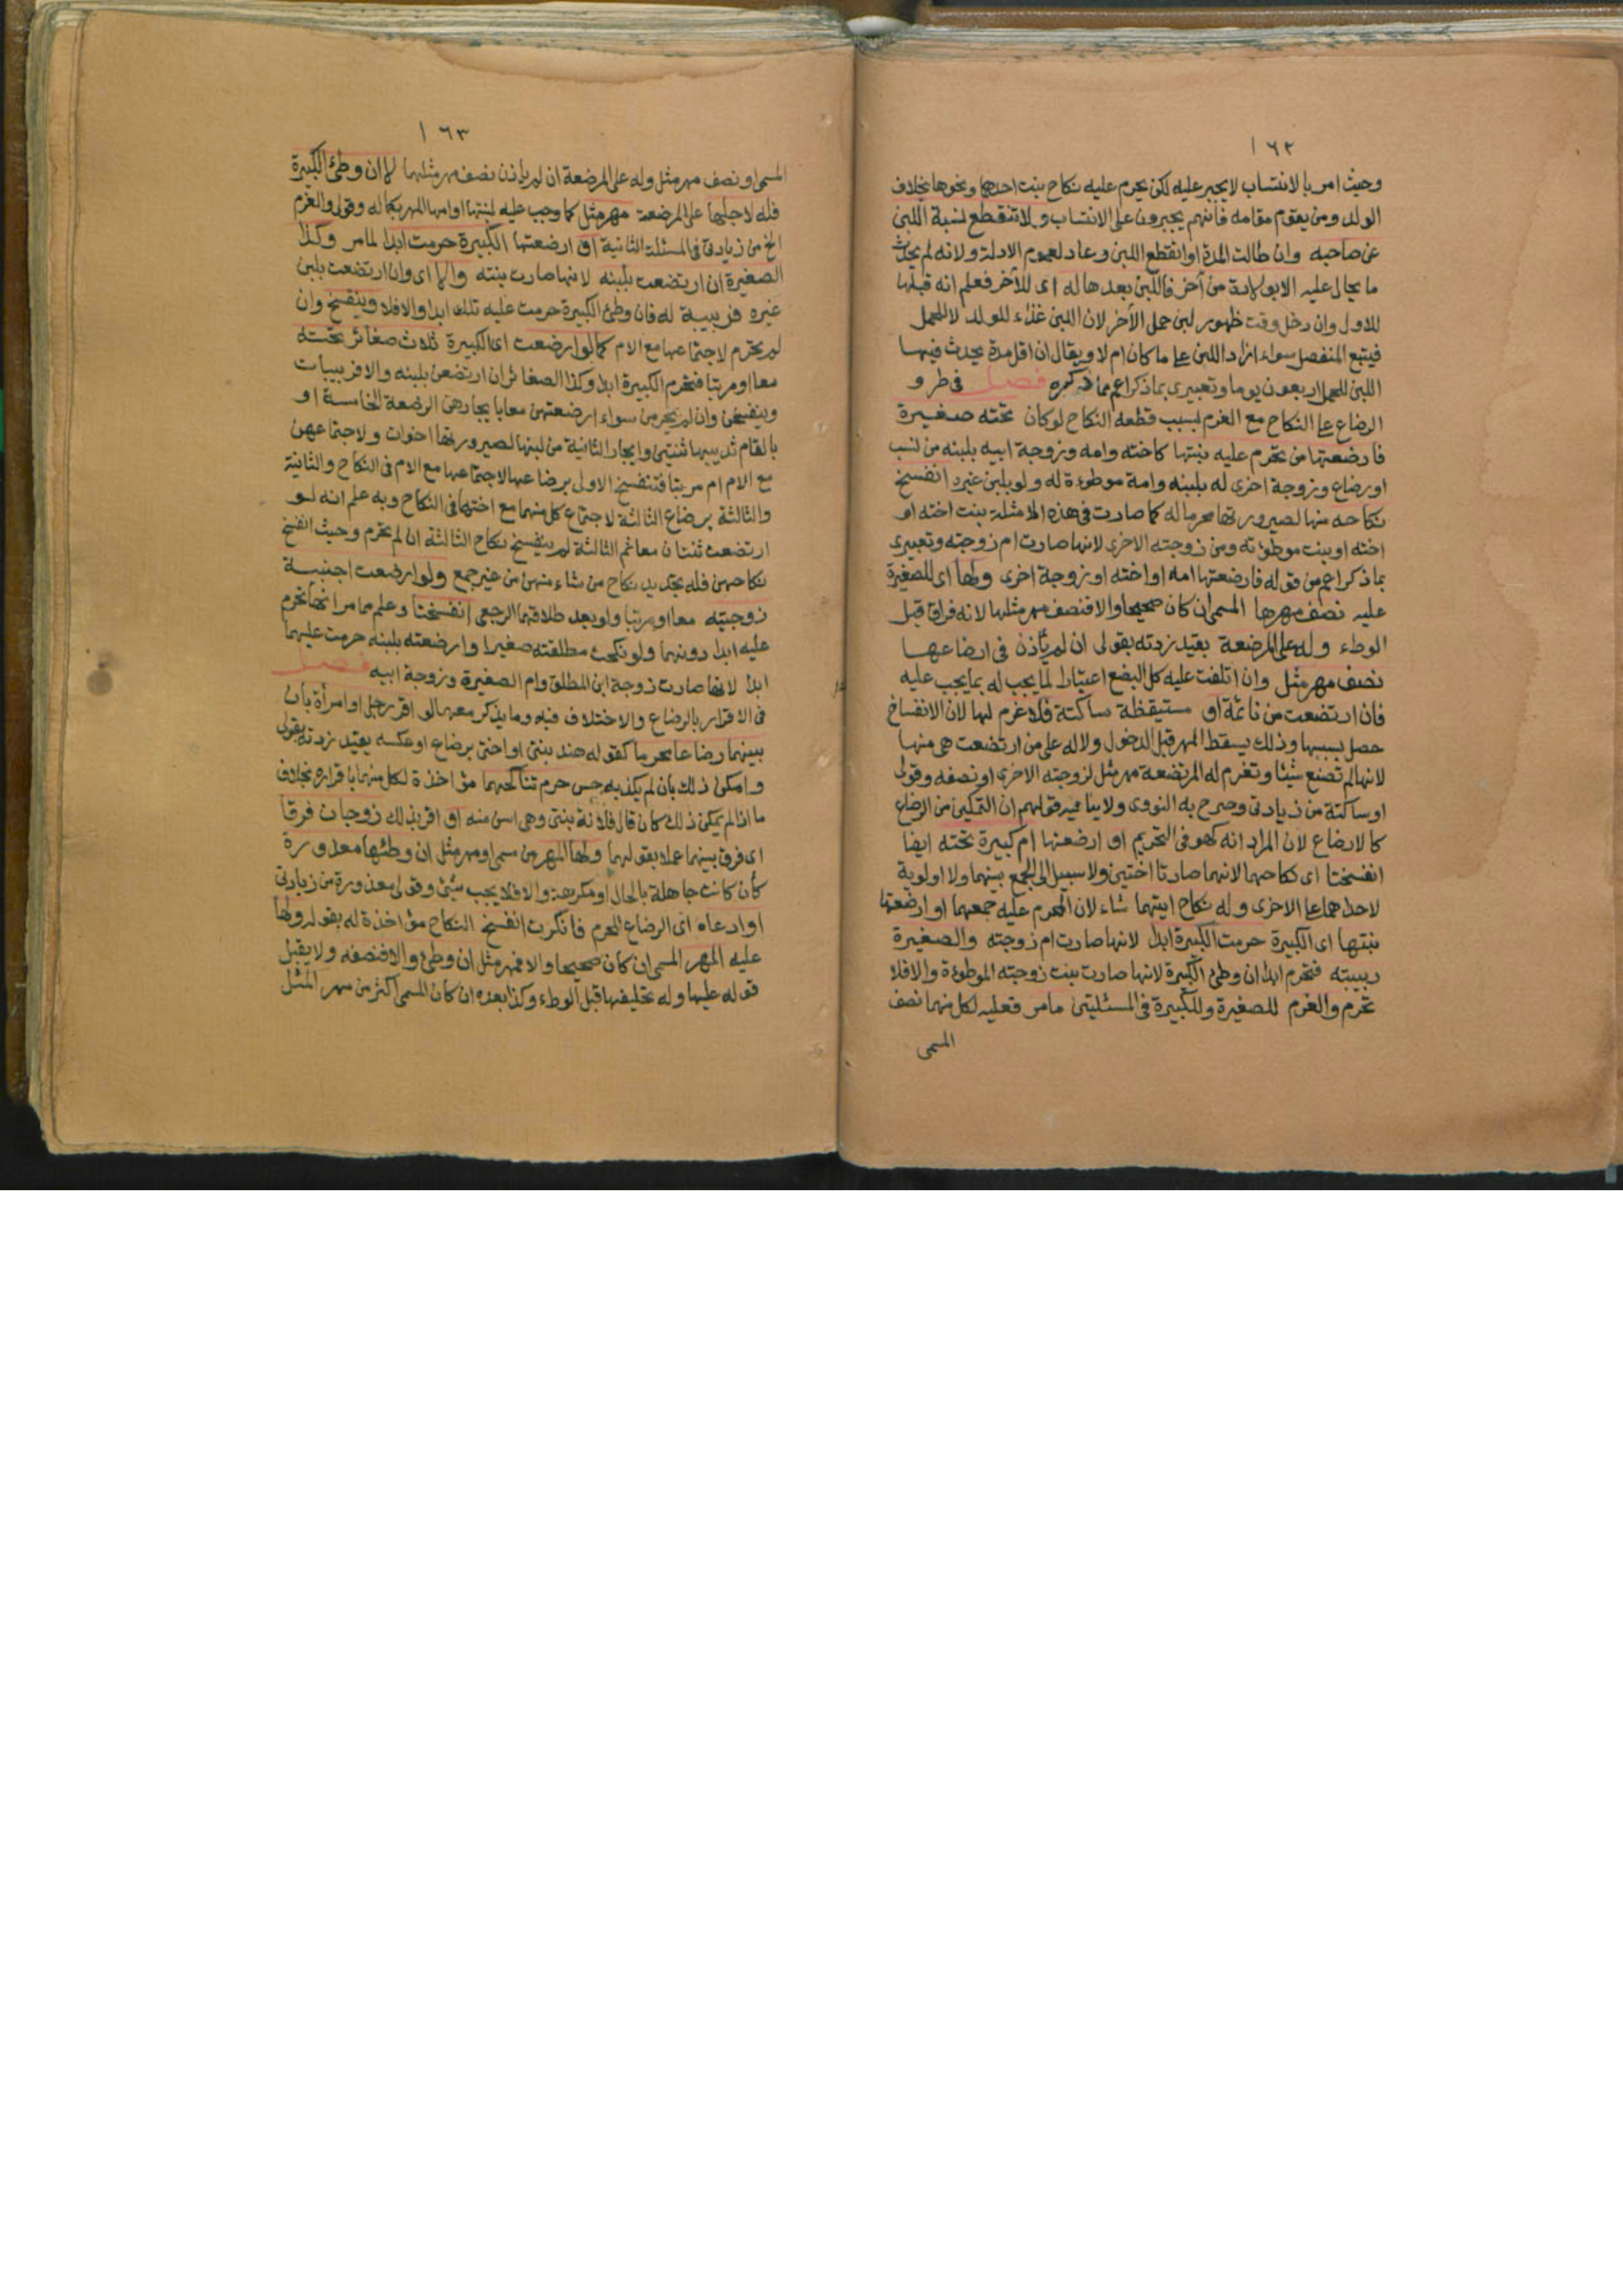 ١٦٢
وحيث امر بالانتساب لا يجبر عليه لكن يحرم عليه نكاح بنت احدهما ونحوها بخلاف
الولد ومن يقوم مقامه فانهم يجبرون على الانتساب ولا تنقطع نسبة اللبن
عن صاحبه وان طالت المدة او انقطع اللبن وعاد لعموم الادلة ولانه لم يحدث
ما يحال عليه الا بولادة من آخر فاللبن بعدها له اى للآخر فعلم انه قبلها
للاول وان دخل وقت ظهور لبن حمل الآخر لان اللبن غذاء للولد لا للحمل
فيتبع المنفصل سواء ازاد اللبن على ما كان ام لا ويقال ان اقل مدة يحدث فيها
اللبن للحمل اربعون يوما وتعبيرى بما ذكر اعم مما ذكره فصل فى طرو
الرضاع على النكاح مع الغرم بسبب قطعه النكاح لو كان تحته صغيرة
فارضعتها من تحرم عليه بنتها كاخته وامه وزوجة ابيه بلبنه من نسب
او رضاع وزوجة اخرى له بلبنه وامة موطوءة له ولو بلبن غيره انفسخ
نكاحه منها لصيرورتها محرما له كما صارت فى هذه الامثلة بنت اخته او
اخته او بنت موطوءته ومن زوجته الاخرى لانها صارت ام زوجته وتعبيرى
بما ذكر اعم من قوله فارضعتها امه او اخته او زوجة اخرى ولها اى للصغيرة
عليه نصف مهرها المسمى ان كان صحيحا والا فنصف مهر مثلها لانه فراق قبل
الوطء وله على المرضعة بقيد زدته بقولى ان لم يأذن فى ارضاعها
نصف مهر مثل وان اتلفت عليه كل البضع اعتبارا لما يجب له بما يجب عليه
فان ارتضعت من نائمة او مستيقظة ساكتة فلا غرم لها لان الانفساخ
حصل بسببها وذلك يسقط المهر قبل الدخول ولا له على من ارتضعت هى منها
لانها لم تصنع شيئا وتغرم له المرتضعة مهر مثل لزوجته الاخرى او نصفه وقولى
او ساكتة من زيادتى وصرح به النووى ولا ينافيه قولهم ان التمكين من الرضاع
كالارضاع لان المراد انه كهو فى التحريم او ارضعتها ام كبيرة تحته ايضا
انفسختا اى نكاحهما لانهما صارتا اختين ولا سبيل الى الجمع بينهما ولا اولوية
لاحداهما على الاخرى وله نكاح ايتهما شاء لان المحرم عليه جمعهما او ارضعتها
بنتها اى الكبيرة حرمت الكبيرة ابدا لانها صارت ام زوجته والصغيرة
ربيبته فتحرم ابدا ان وطئ الكبيرة لانها صارت بنت زوجته الموطوءة والا فلا
تحرم والغرم للصغيرة وللكبيرة فى المسئلتين ما مر فعليه لكل منهما نصف
المسمى
١٦٣
المسمى او نصف مهر مثل وله على المرضعة ان لم يأذن نصف مهر مثلهما لا ان وطئ الكبيرة
فله لاجلها على المرضعة مهر مثل كما وجب عليه لبنتها او امها المهر بكماله وقولى والغرم
الخ من زيادتى فى المسئلة الثانية او ارضعتها الكبيرة حرمت ابدا لما مر وكذا
الصغيرة ان ارتضعت بلبنه لانها صارت بنته والا اى وان ارتضعت بلبن
غيره فربيبة له فان وطئ الكبيرة حرمت عليه تلك ابدا والا فلا وينفسخ وان
لم تحرم لاجتماعها مع الام كما لو ارضعت اى الكبيرة ثلاث صغائر تحته
معا او مرتبا فتحرم الكبيرة ابدا وكذا الصغائر ان ارتضعن بلبنه والا فربيبات
وينفسخن وان لم يحرمن سواء ارضعتهن معا بايجارهن الرضعة الخامسة او
بالقام ثدييها ثنتين وايجار الثالثة من لبنها لصيرورتها اخوات ولاجتماعهن
مع الام ام مرتبا فتنفسخ الاولى برضاعها لاجتماعها مع الام فى النكاح والثانية
والثالثة برضاع الثالثة لاجتماع كل منهما مع اختها فى النكاح وبه علم انه لو
ارتضعت ثنتان معا ثم الثالثة لم ينفسخ نكاح الثالثة ان لم تحرم وحيث انفسخ
نكاحهن فله تجديد نكاح من شاء منهن من غير جمع ولو ارضعت اجنبية
زوجتيه معا او مرتبا ولو بعد طلاقهما الرجعى انفسختا وعلم مما مر انها تحرم
عليه ابدا دونهما ولو نكحت مطلقته صغيرا وارضعته بلبنه حرمت عليهما
ابدا لانها صارت زوجة ابن المطلق وام الصغيرة وزوجة ابيه فصل
فى الاقرار بالرضاع والاختلاف فيه وما يذكر معهما لو اقر رجل او امرأة بان
بينهما رضاعا محرما كقوله هند بنتى او اختى برضاع او عكسه بقيد زدته بقولى
وامكن ذلك بان لم يكذبه حس حرم تناكحهما مؤاخذة لكل منهما باقراره بخلاف
ما اذا لم يمكن ذلك كان قال فلانة بنتى وهى اسن منه او اقر بذلك زوجان فرقا
اى فرق بينهما عملا بقولهما ولها المهر من مسمى او مهر مثل ان وطئها معذورة
كأن كانت جاهلة بالحال او مكرهة والا فلا يجب شئ وقولى معذورة من زيادتى
او ادعاه اى الرضاع المحرم فانكرت انفسخ النكاح مؤاخذة له بقوله ولها
عليه المهر المسمى ان كان صحيحا والا فمهر مثل ان وطئ والا فنصفه ولا يقبل
قوله عليها وله تحليفها قبل الوطء وكذا بعده ان كان المسمى اكثر من مهر المثل